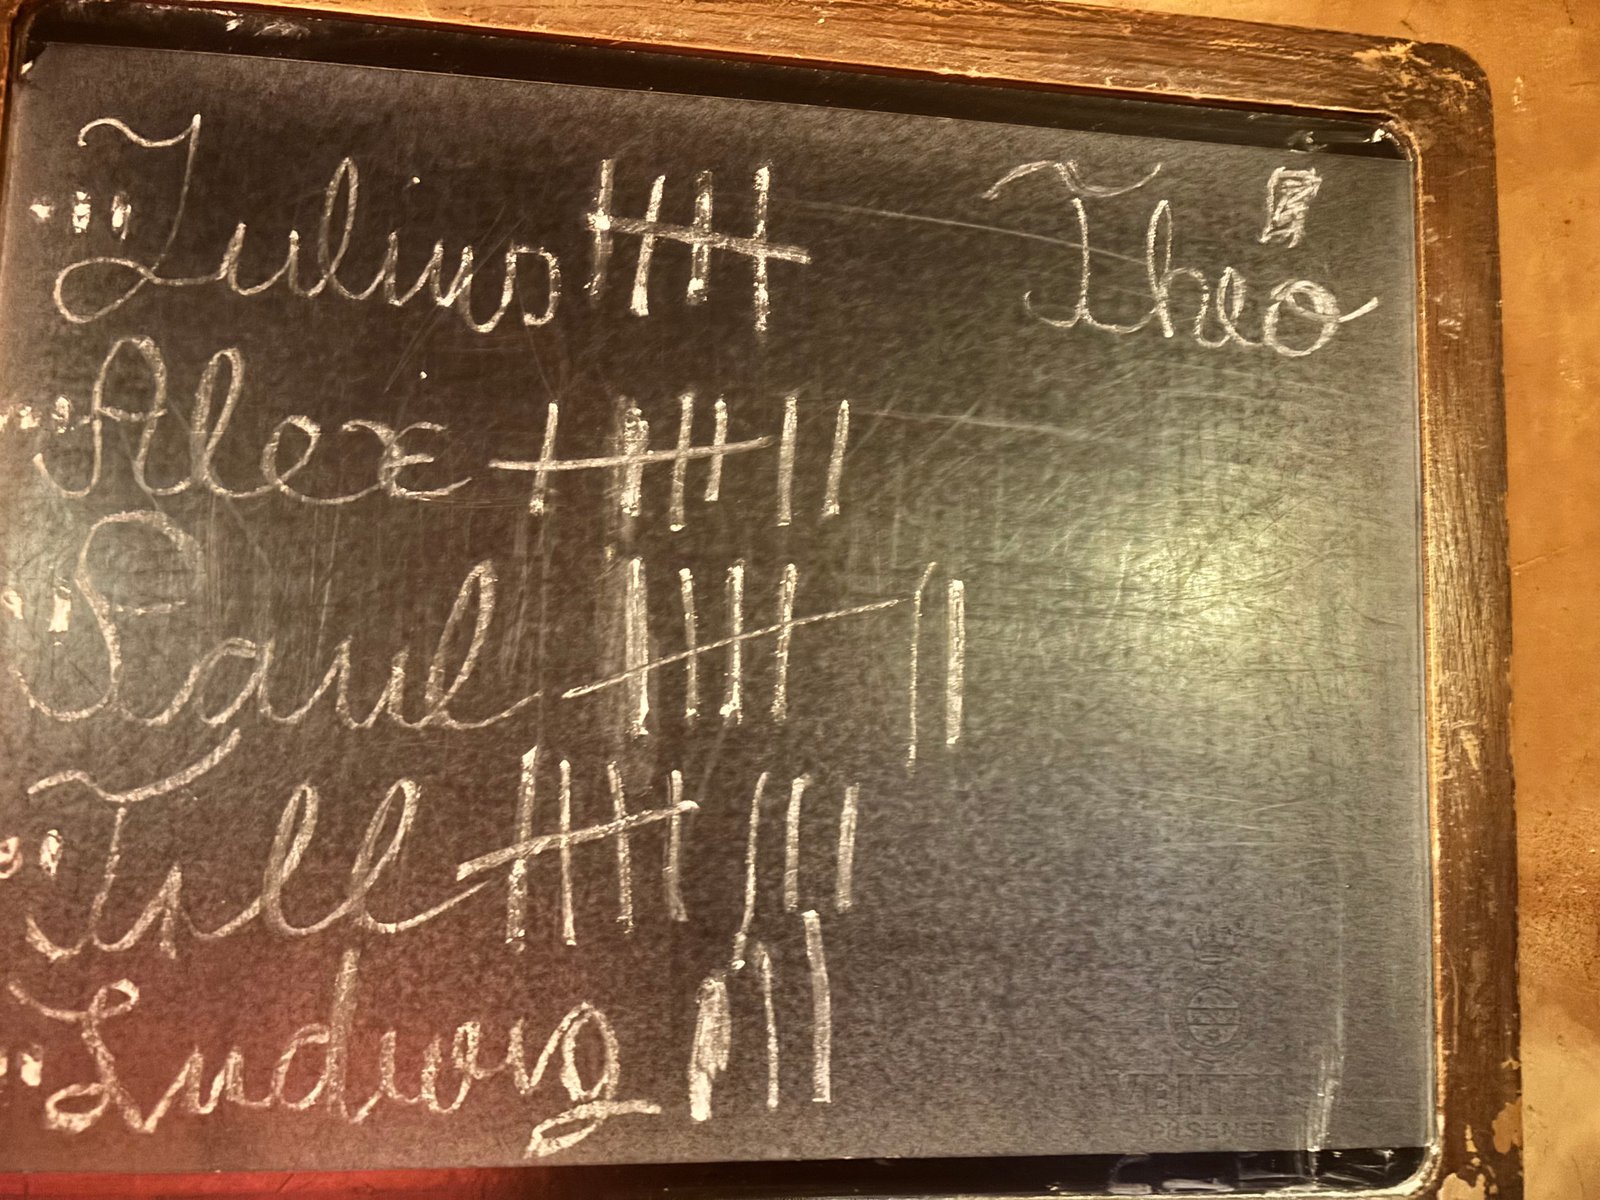 Julius Theo
Alex
Paul
Till
Ludwig
PILSENER